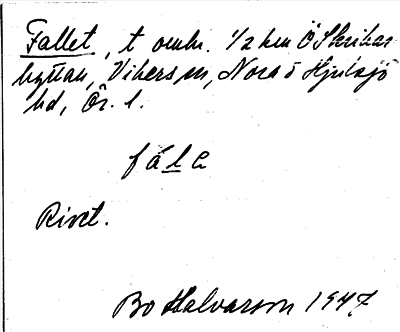 Fallet, t omkr. 1/2 km Ö Skrikar-
hyttan, Vikers sn, Nora o Hjulsjö
hd, Ör. l.
fálɛ
Rivet.
Bo Halvarson 1947